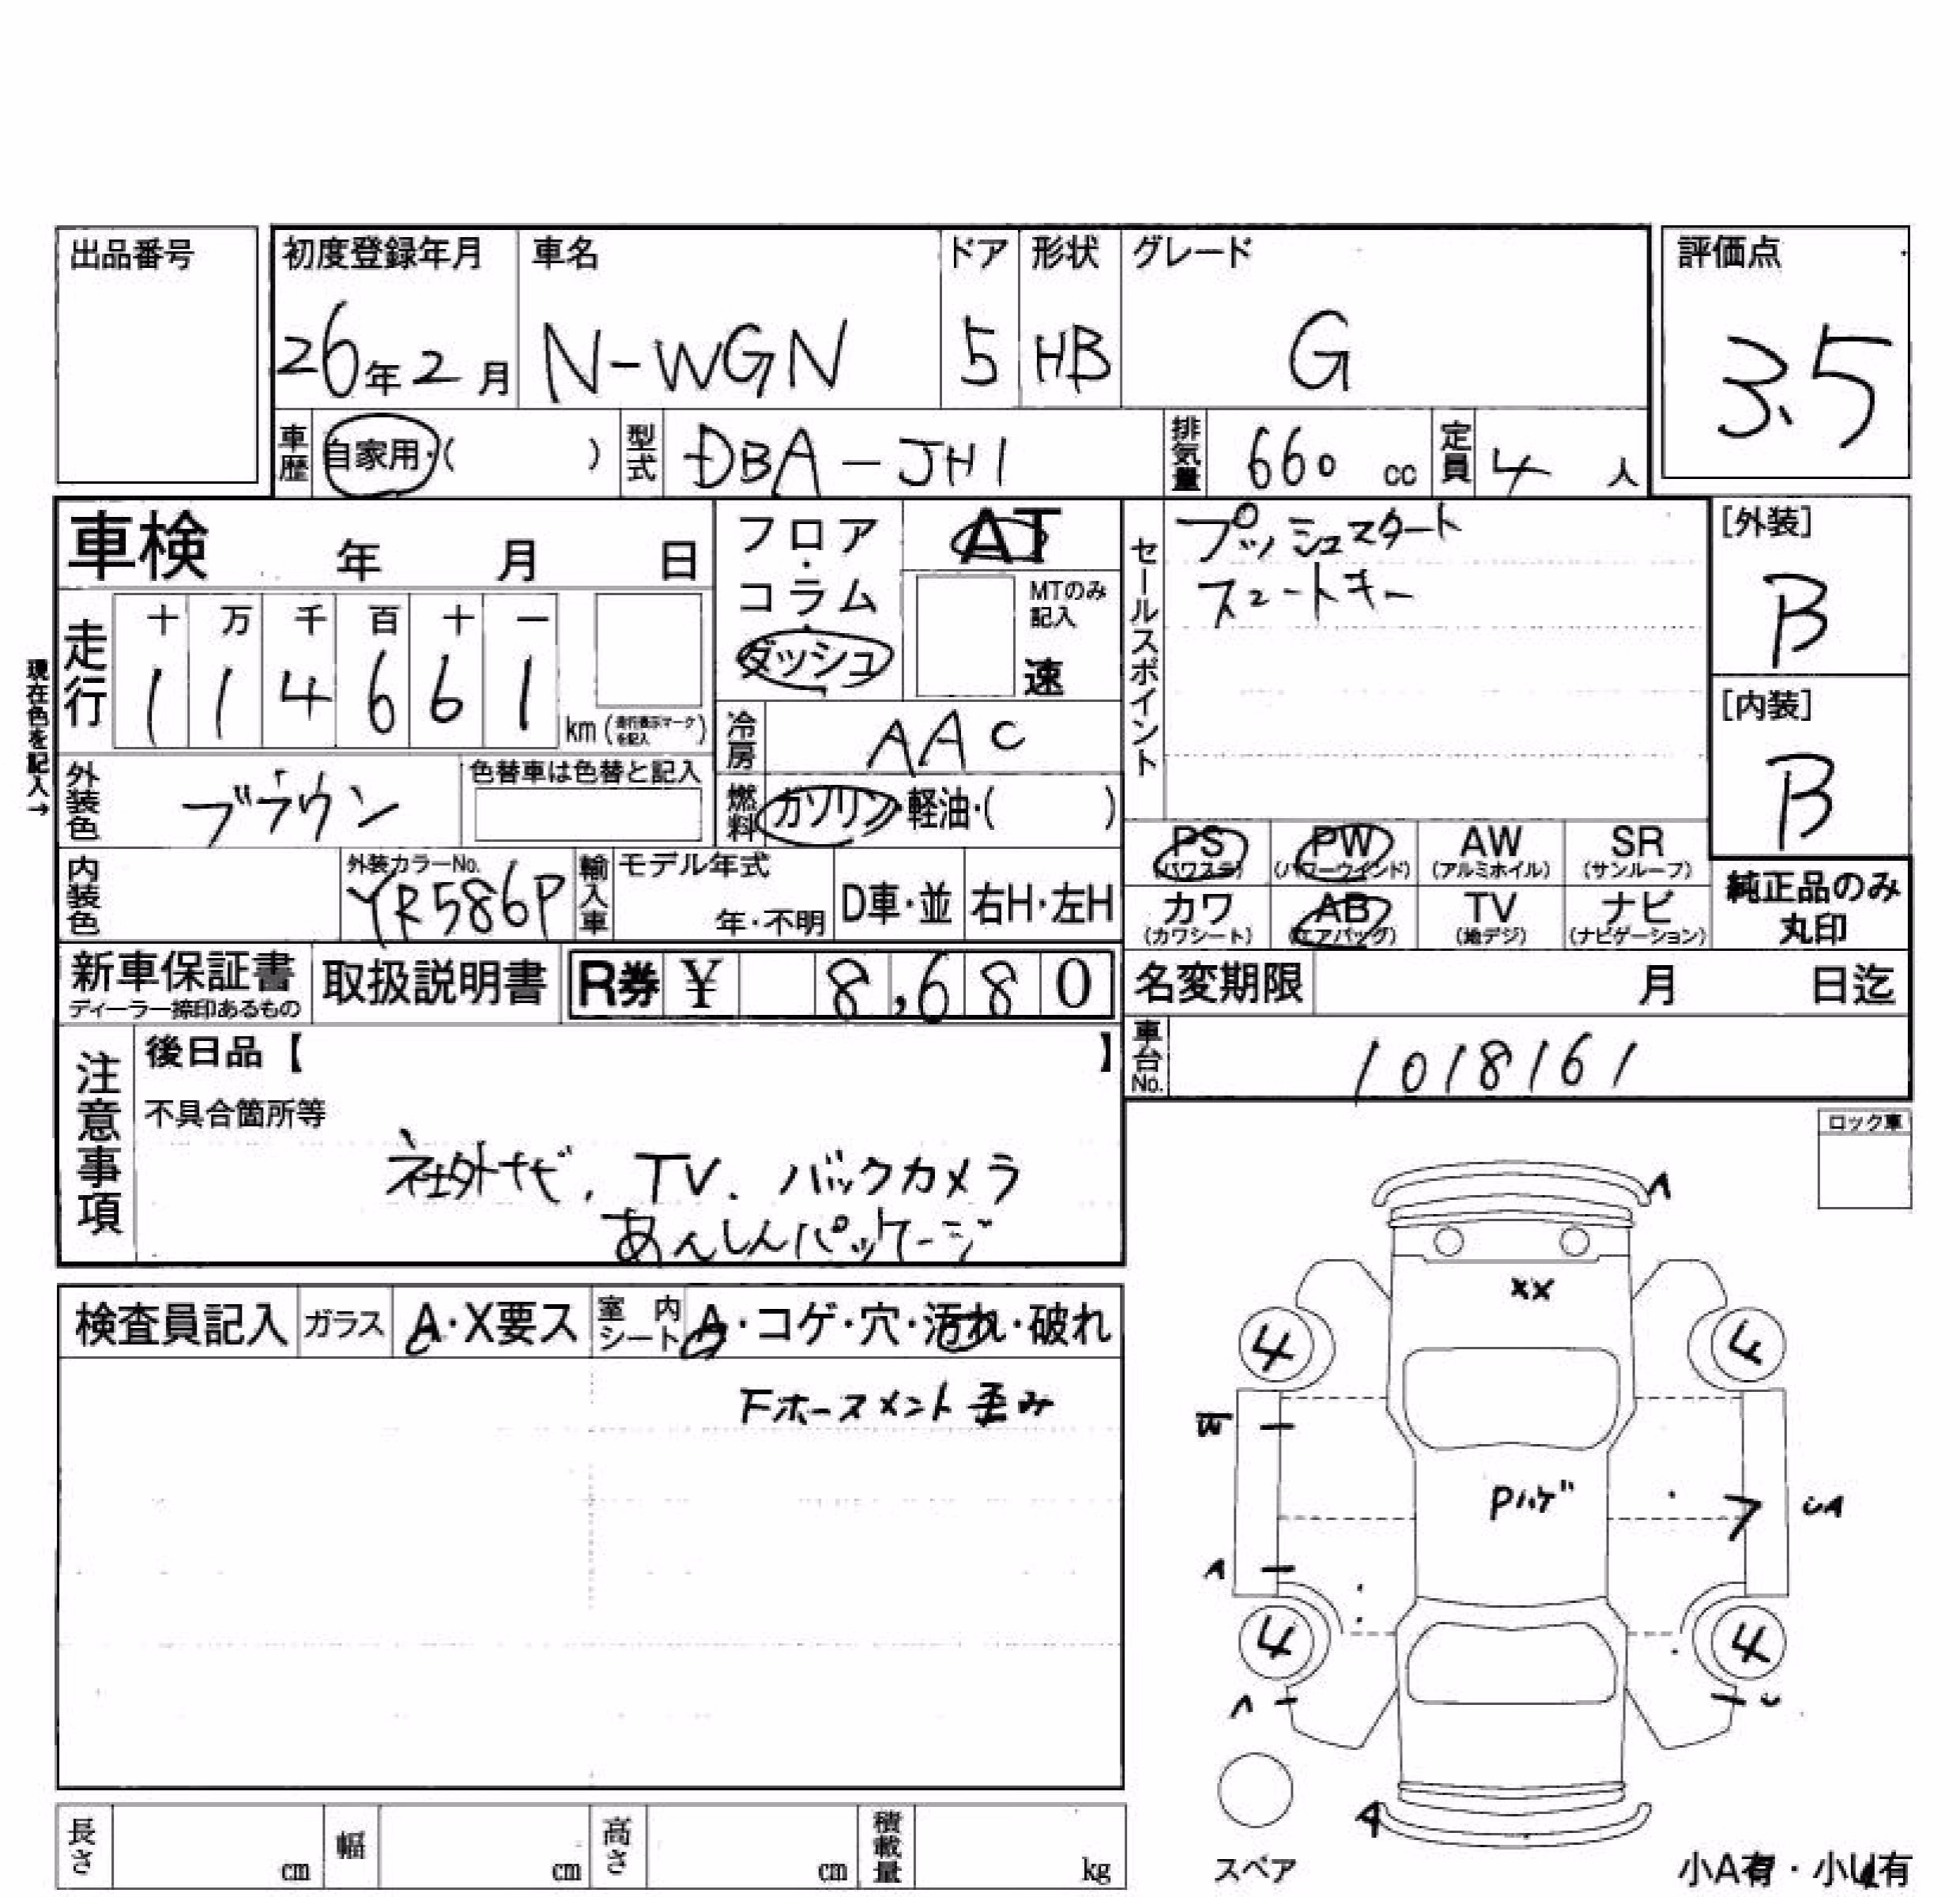 出品番号
初度登録年月 車名 ドア 形状 グレード 評価点
26年2月 N-WGN 5 HB G 3.5
車歴 自家用・( ) 型式 DBA-JH1 排気量 660 cc 定員 4 人
車検 年 月 日
フロア・コラム・ダッシュ
AT
MTのみ記入
速
セールスポイント
プッシュスタート
スマートキー
[外装]
B
[内装]
B
現在色を記入→
走行 十 万 千 百 十 一
1 1 4 6 6 1 km (走行表示マークを記入)
冷房 AAC
外装色 ブラウン 色替車は色替と記入
燃料 ガソリン・軽油・( )
内装色 外装カラーNo. YR586P
輸入車 モデル年式 年・不明 D車・並 右H・左H
PS (パワステ) PW (パワーウインド) AW (アルミホイル) SR (サンルーフ)
カワ (カワシート) AB (エアバッグ) TV (地デジ) ナビ (ナビゲーション)
純正品のみ丸印
新車保証書 ディーラー捺印あるもの 取扱説明書 R券 ¥ 8,680
名変期限 月 日迄
車台No. 1018161
注意事項
後日品【 】
不具合箇所等
社外ナビ, TV. バックカメラ
あんしんパッケージ
ロック車
検査員記入 ガラス A・X要ス 室内シート A・コゲ・穴・汚れ・破れ
Fホースメント歪み
A
XX
4 4
W
Pハゲ
UA
A
4 4
A U
A
スペア
小A有・小U有
長さ cm 幅 cm 高さ cm 積載量 kg